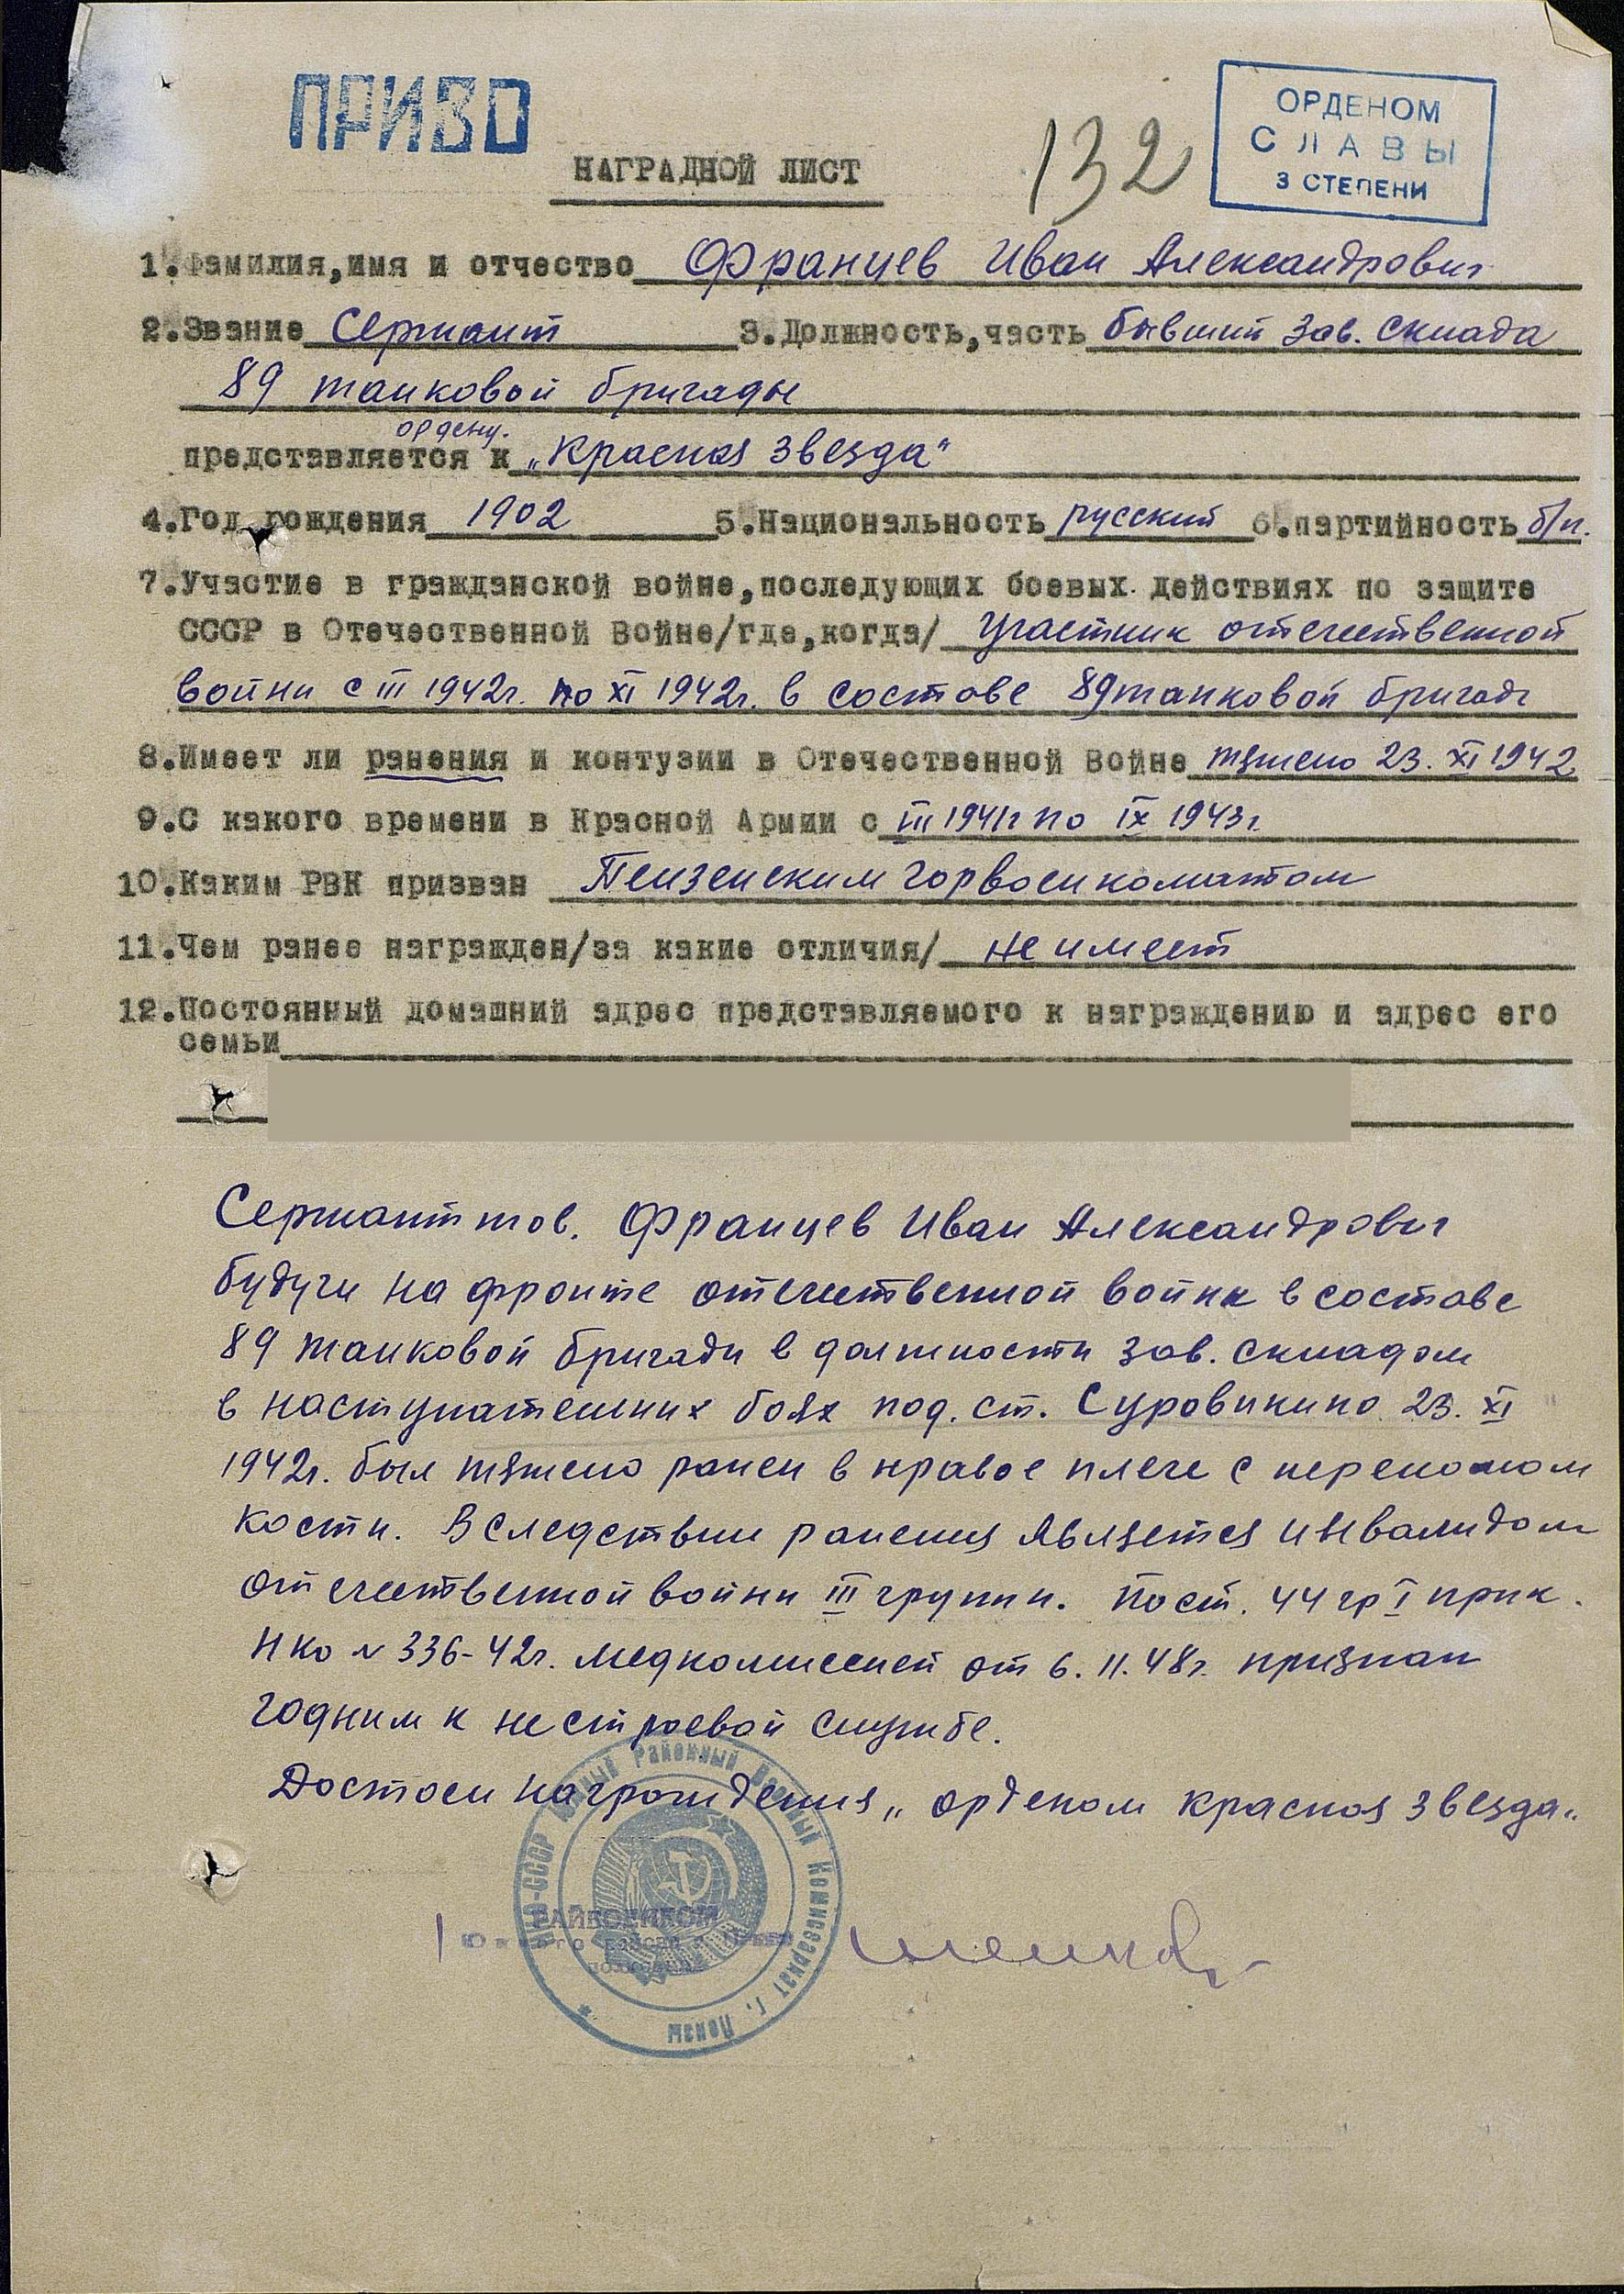 ПРИВО
132
ОРДЕНОМ
СЛАВЫ
3 СТЕПЕНИ
НАГРАДНОЙ ЛИСТ
1.Фамилия,имя и отчество Францев Иван Александрович
2.Звание Сержант 3.Должность,часть бывший зав. склада
89 танковой бригады
ордену.
представляется к „Красная звезда"
4.Год рождения 1902 5.Национальность русский 6.партийность б/п.
7.Участие в гражданской войне,последующих боевых действиях по защите
СССР в Отечественной Войне/где,когда/ Участник отечественной
войны с III 1942г. по XI 1942г. в составе 89 танковой бригады
8.Имеет ли ранения и контузии в Отечественной Войне тяжело 23. XI 1942
9.С какого времени в Красной Армии с III 1941г по IX 1943г
10.Каким РВК призван Пензенским горвоенкоматом
11.Чем ранее награжден/за какие отличия/ не имеет
12.Постоянный домашний адрес представляемого к награждению и адрес его
семьи
Сержант тов. Францев Иван Александрович
будучи на фронте отечественной войны в составе
89 танковой бригады в должности зав. складом
в наступательных боях под. ст. Суровикино 23. XI
1942г. был тяжело ранен в правое плече с переломом
кости. Вследствии ранения является инвалидом
отечественной войны III группы. Пост. 44 гр I прик.
НКО N 336-42г. Медкомиссией от 6. II. 48г. признан
годным к нестроевой службе.
Достоен награждения „ орденом красная звезда"
НКО-СССР Южный Районный Военный Комиссариат г. Пензы
РАЙВОЕНКОМ
Южного района г. Пензы